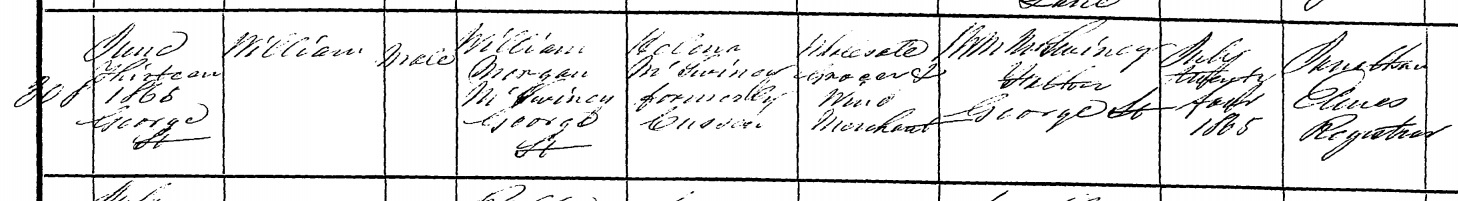 Lane
308
June
Thirteen
1865
George
St
William
Male
William
Morgan
McSwiney
George
St
Helena
McSwiney
formerly
Cussen
Wholesale
Grocer &
Wine
Merchant
Wm McSwiney
Father
George St
July
twenty
four
1865
Jonathan
Elmes
Registrar